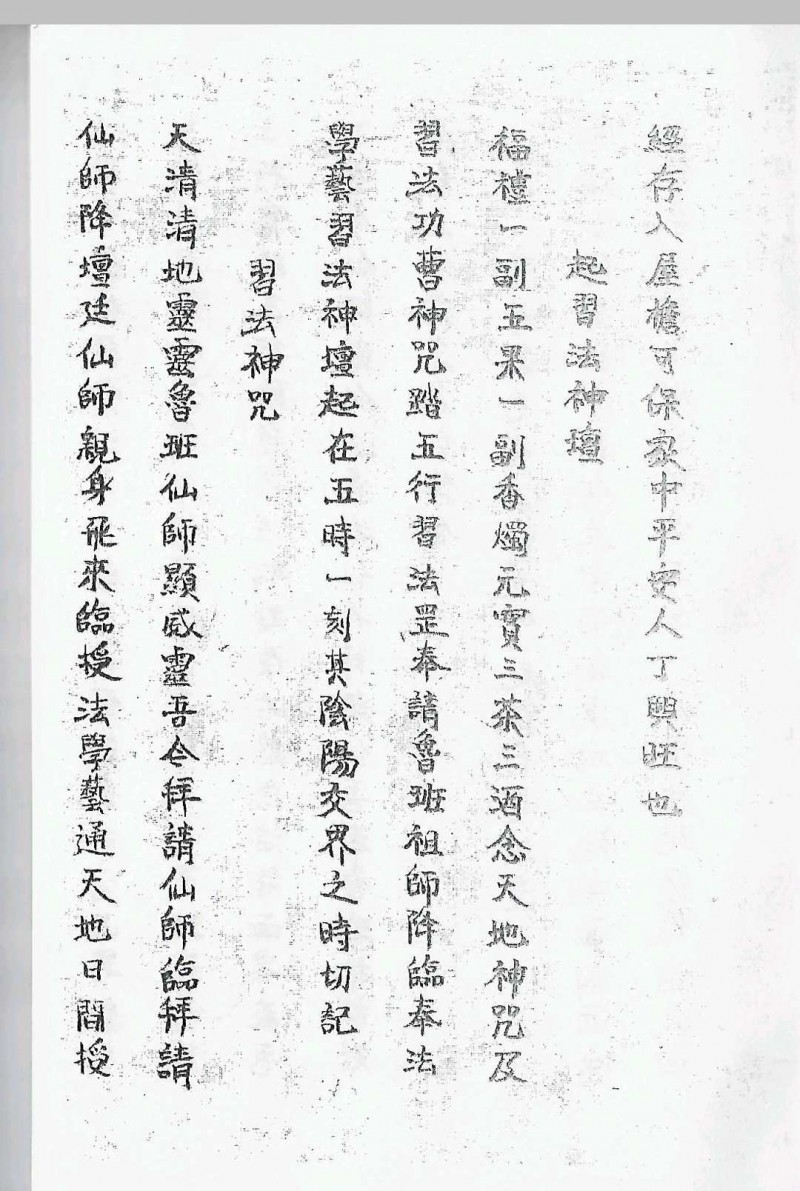 經存入屋檐可保家中平安人丁興旺也
起習法神壇
福禮一副五果一副香燭元寶三茶三酒念天地神咒及
習法功曹神咒踏五行習法罡奉請魯班祖師降臨奉法
學藝習法神壇起在五時一刻其陰陽交界之時切記
習法神咒
天清清地靈靈魯班仙師顯威靈吾今拜請仙師臨拜請
仙師降壇廷仙師親身飛來臨授法學藝通天地日間授